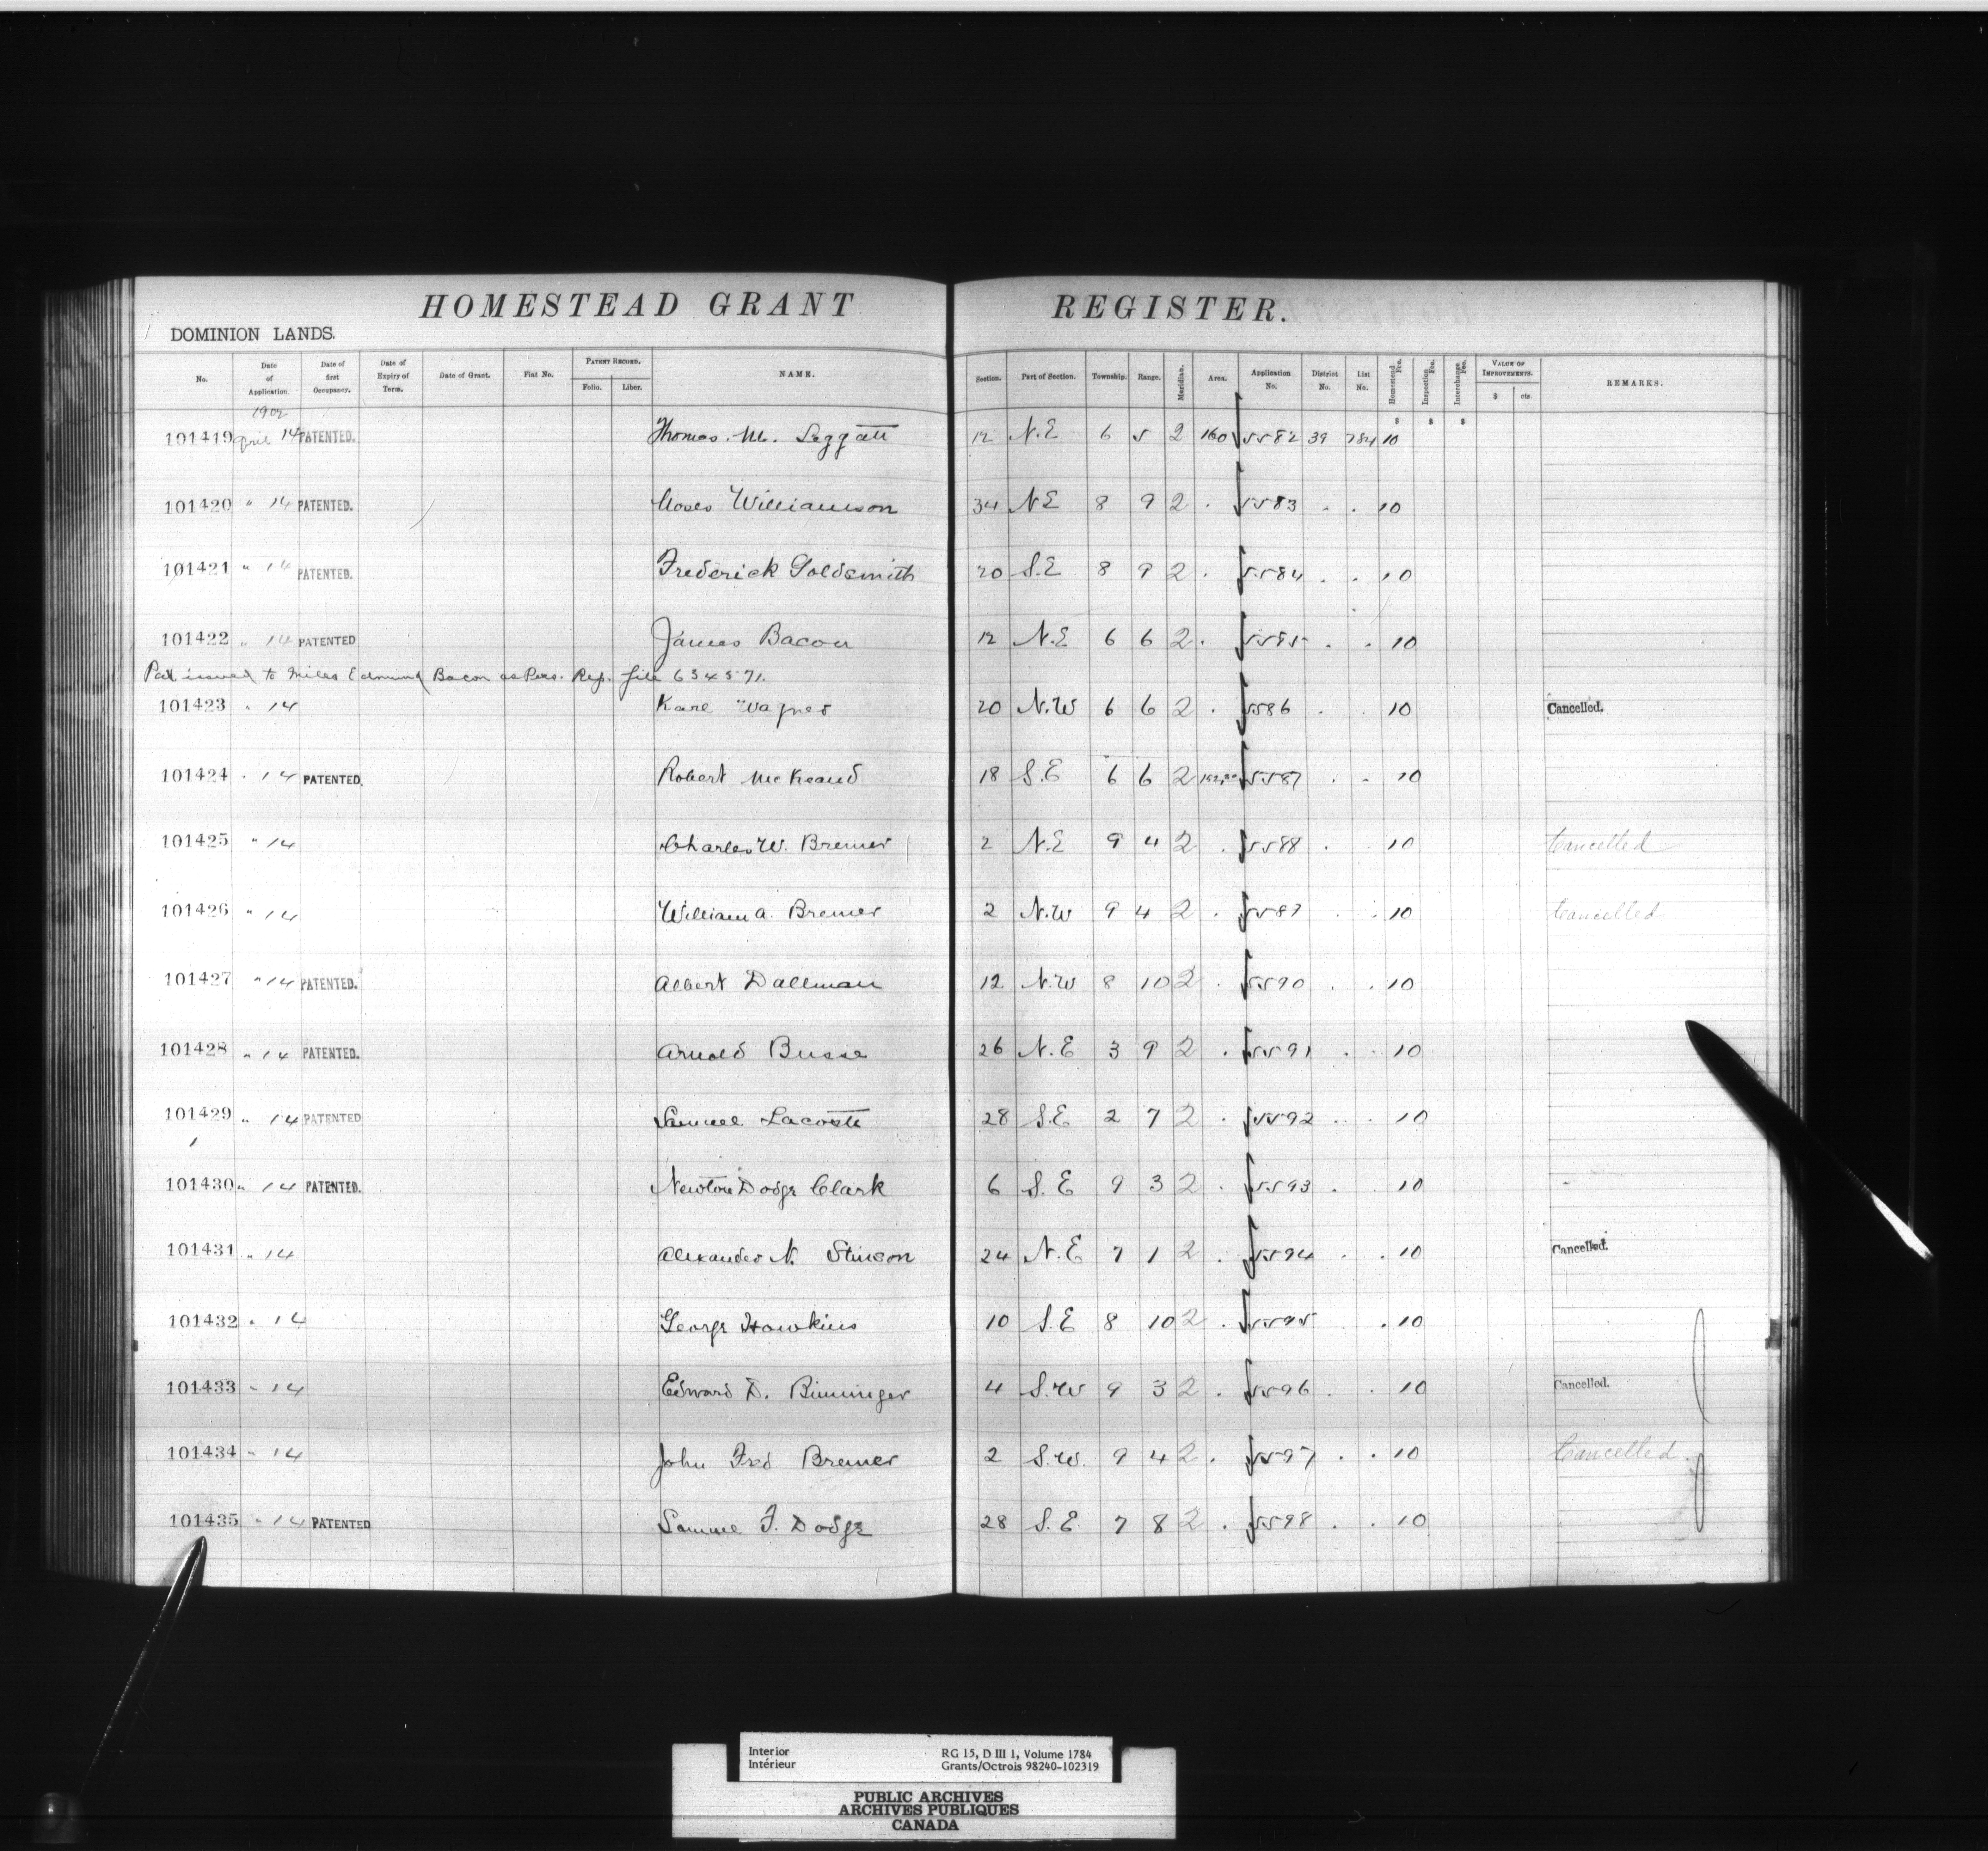 HOMESTEAD GRANT REGISTER.
DOMINION LANDS.
No. Date of Application. Date of first Occupancy. Date of Expiry of Term. Date of Grant. Fiat No. PATENT RECORD. Folio. Liber. NAME. Section. Part of Section. Township. Range. Meridian. Area. Application No. District No. List No. Homestead Fee. Inspection Fee. Interchange Fee. VALUE OF IMPROVEMENTS. $ cts. REMARKS.
1902 $ $ $
101419 April 14 PATENTED. Thomas. M. Leggatt 12 N.E 6 5 2 160 5582 39 784 10
101420 " 14 PATENTED. Moses Williamson 34 N.E 8 9 2 . 5583 . . 10
101421 " 14 PATENTED. Frederick Goldsmith 20 S.E 8 9 2 . 5584 . . 10
101422 " 14 PATENTED James Bacon 12 N.E 6 6 2 . 5585 . . 10
Pat issued to Miles Edmund Bacon as Pers. Rep. file 634571.
101423 " 14 Karl Wagner 20 N.W 6 6 2 . 5586 . . 10 Cancelled.
101424 " 14 PATENTED. Robert McKeand 18 S.E 6 6 2 5587 . . 10
101425 " 14 Charles W. Bremer 2 N.E 9 4 2 . 5588 . . 10 Cancelled
101426 " 14 William A. Bremer 2 N.W 9 4 2 . 5589 . . 10 Cancelled
101427 " 14 PATENTED. Albert Dallman 12 N.W 8 10 2 . 5590 . . 10
101428 " 14 PATENTED. Arnold Busse 26 N.E 3 9 2 . 5591 . . 10
101429 " 14 PATENTED Samuel Lacoste 28 S.E 2 7 2 . 5592 . . 10
101430 " 14 PATENTED. Newton Dodge Clark 6 S.E 9 3 2 . 5593 . . 10
101431 " 14 Alexander N. Stinson 24 N.E 7 1 2 . 5594 . . 10 Cancelled.
101432 " 14 George Hawkins 10 S.E 8 10 2 . 5595 . 10
101433 " 14 Edward D. Binninger 4 S.W 9 3 2 . 5596 . . 10 Cancelled.
101434 " 14 John Fred Bremer 2 S.W. 9 4 2 . 5597 . . 10 Cancelled.
101435 " 14 PATENTED Samuel F. Dodge 28 S.E. 7 8 2 . 5598 . . 10
Interior RG 15, D III 1, Volume 1784
Intérieur Grants/Octrois 98240-102319
PUBLIC ARCHIVES
ARCHIVES PUBLIQUES
CANADA